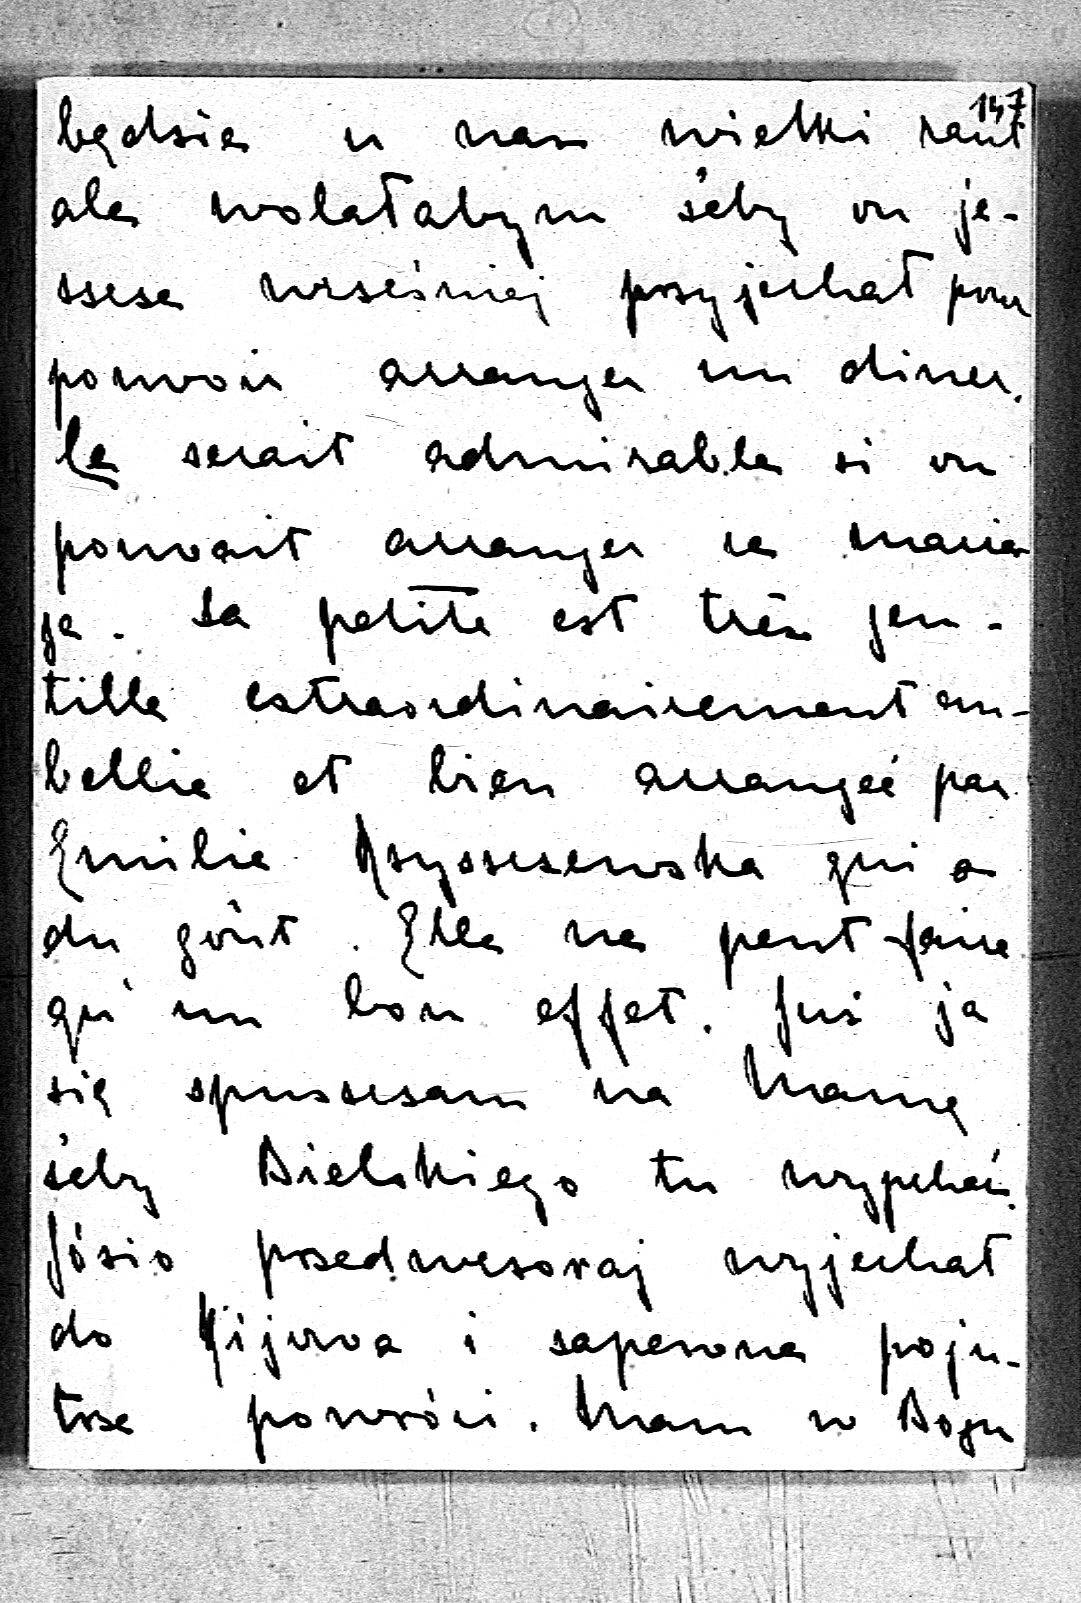 147
będzie u nas wielki raut
ale wolałabym żeby on je-
szcze wcześniej przyjechał pour
pouvoir arranger un diner.
Ce serait admirable si on
pouvait arranger ce maria
ge. La petite est très jen-
tille extraordinairement em-
bellie et bien arrangeé par
Emilie Krzyszczewska qui a
du goût. Elle ne peut faire
qu'un bon effet. Już ja
się spuszczam na Mamę
żeby Bielskiego tu wypchać.
Józio przedwczoraj wyjechał
do Kijowa i zapewne poju-
trze powróci. Mam w Bogu